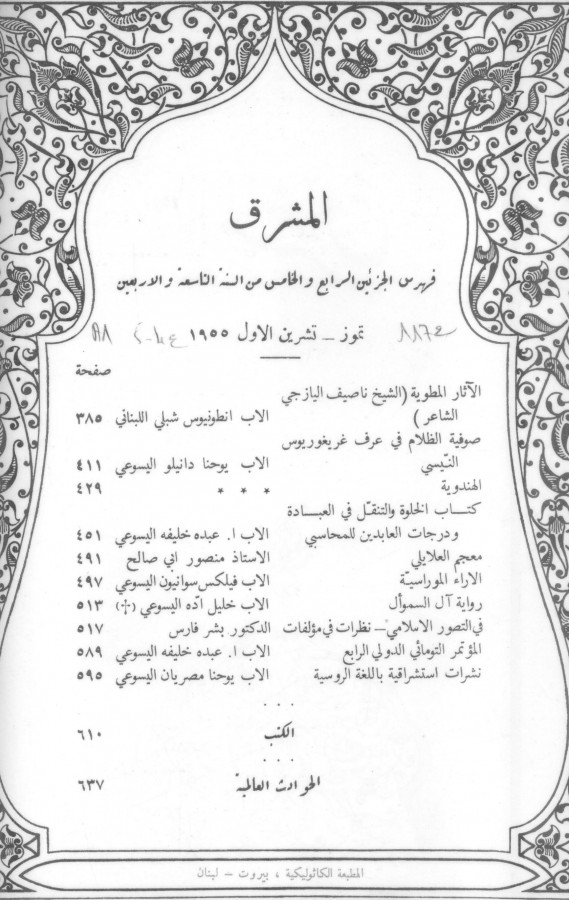 المشرق
فهرس الجزئين الرابع والخامس من السنة التاسعة والاربعين
تموز – تشرين الاول ١٩٥٥
صفحة
الآثار المطوية (الشيخ ناصيف اليازجي
الشاعر) الاب انطونيوس شبلي اللبناني ٣٨٥
صوفية الظلام في عرف غريغوريوس
النّيسي الاب يوحنا دانيلو اليسوعي ٤١١
الهندوية * * * ٤٢٩
كتاب الخلوة والتنقّل في العبادة
ودرجات العابدين للمحاسبي الاب ا. عبده خليفه اليسوعي ٤٥١
معجم العلايلي الاستاذ منصور ابي صالح ٤٩١
الاراء الموراسيّة الاب فيلكس سوانيون اليسوعي ٤٩٧
رواية آل السموأل الاب خليل ادّه اليسوعي (†) ٥١٣
في التصور الاسلامي – نظرات في مؤلفات الدكتور بشر فارس ٥١٧
المؤتمر التومائي الدولي الرابع الاب ا. عبده خليفه اليسوعي ٥٨٩
نشرات استشراقية باللغة الروسية الاب يوحنا مصريان اليسوعي ٥٩٥
. . .
الكتب ٦١٠
. . .
الحوادث العالمية ٦٣٧
المطبعة الكاثوليكية ، بيروت – لبنان